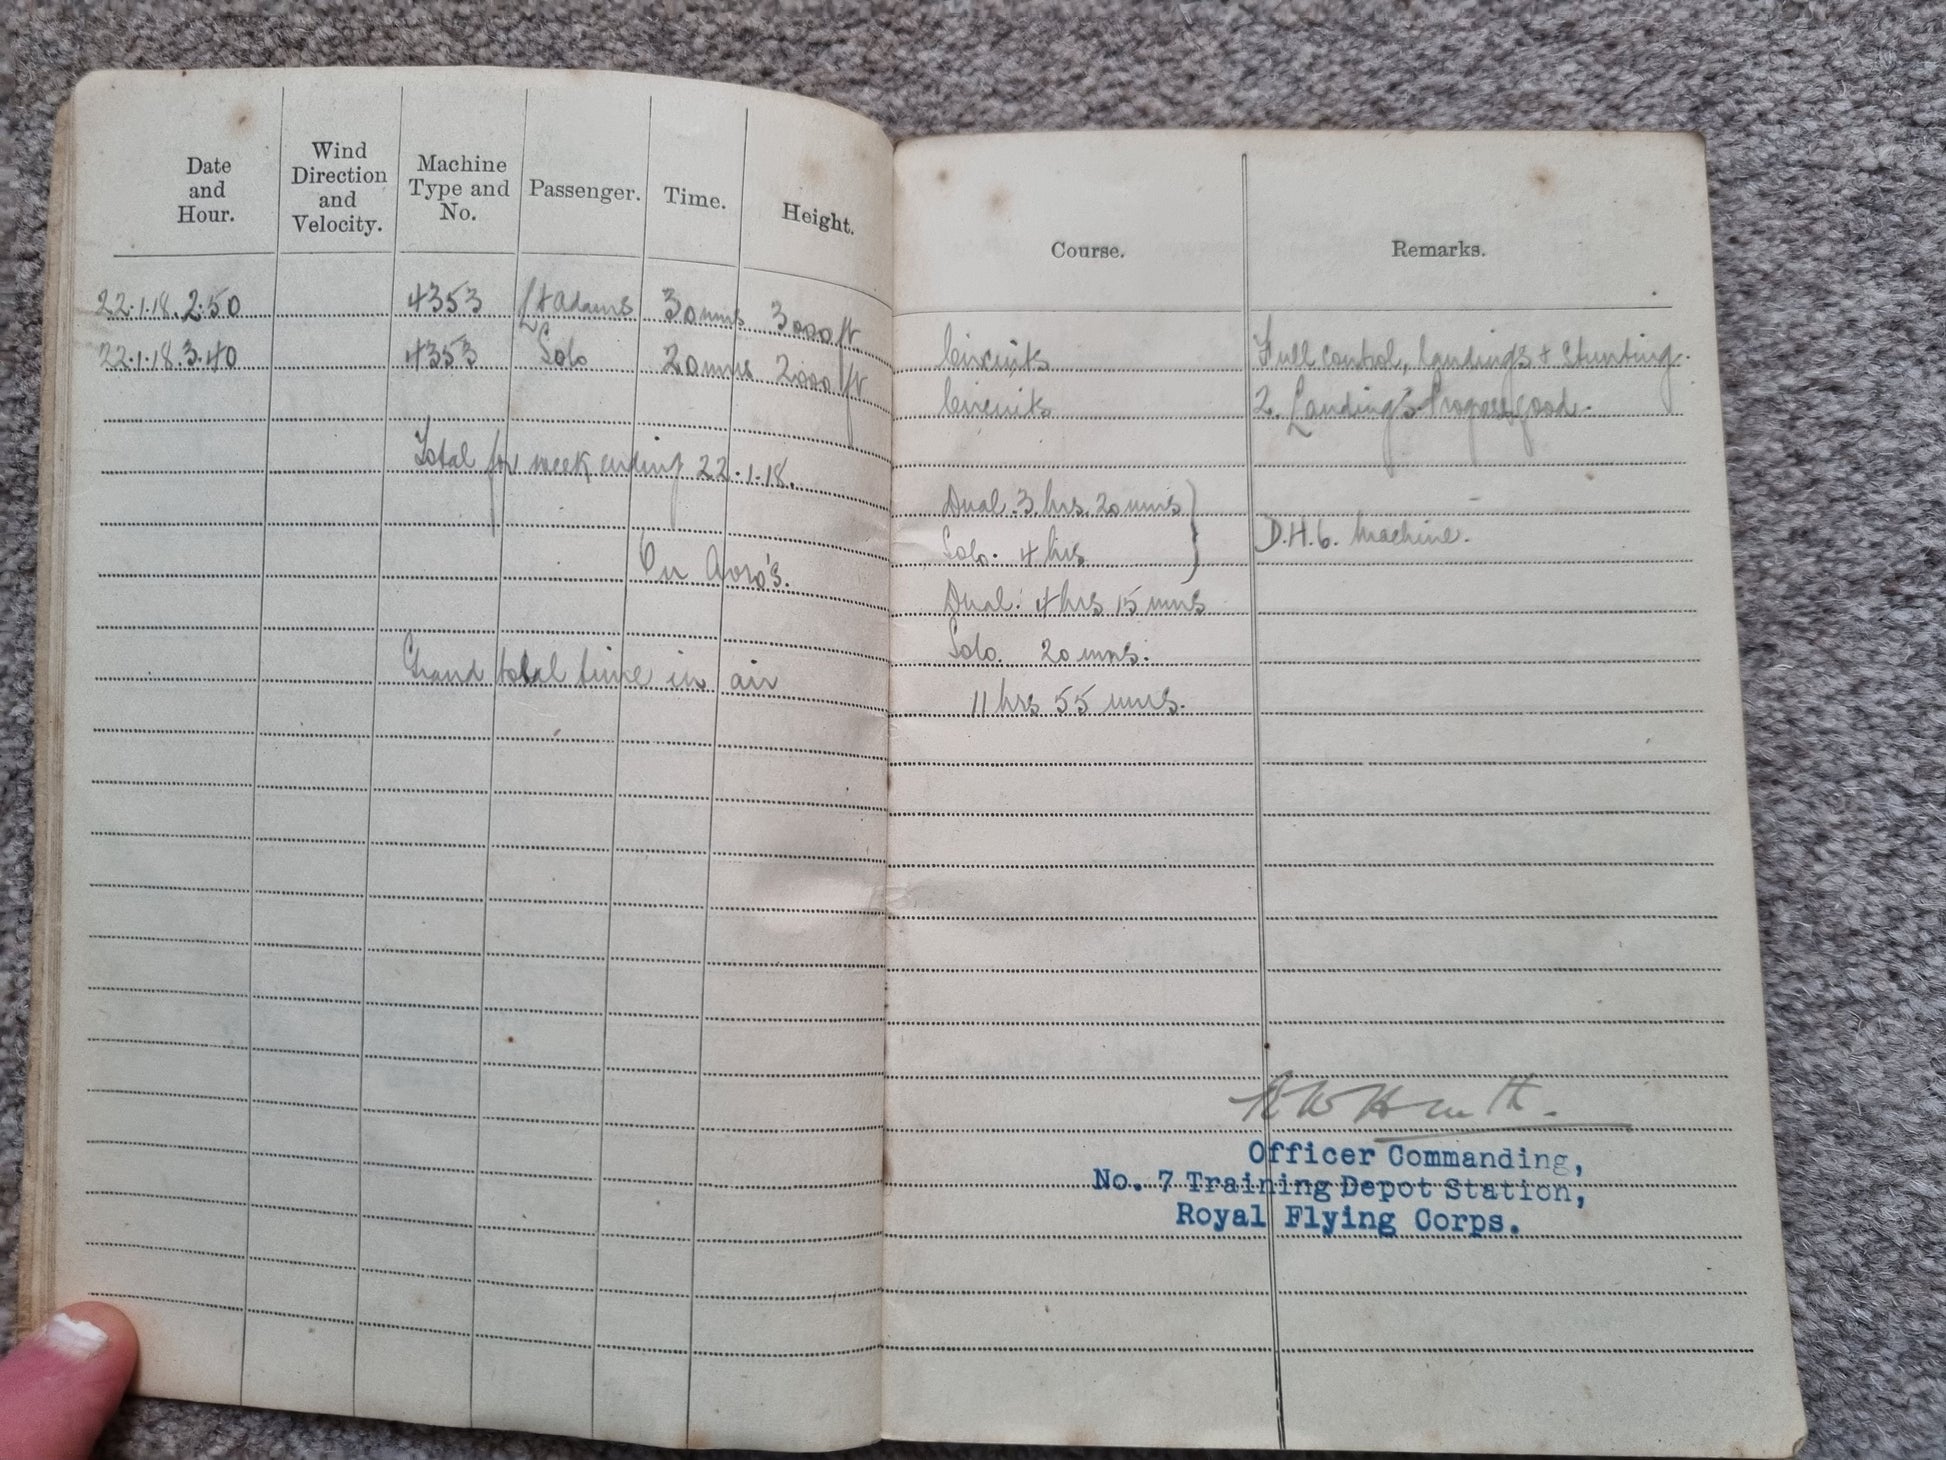 Date and Hour. Wind Direction and Velocity. Machine Type and No. Passenger. Time. Height. Course. Remarks.
22.1.18. 2.50 4353 Lt Adams 30 mns 3000 ft. Circuits Full control, landings + Stunting.
22.1.18. 3.40 4353 Solo 20 mns 2000 ft Circuits 2. Landings Progress good.
Total for week ending 22.1.18.
Dual. 3. hrs. 20 mns
Solo. 4 hrs
D.H.6. Machine.
On Avro's. Dual. 4 hrs 15 mns
Solo. 20 mns.
Grand total time in air 11 hrs 55 mns.
Officer Commanding,
No. 7 Training Depot Station,
Royal Flying Corps.